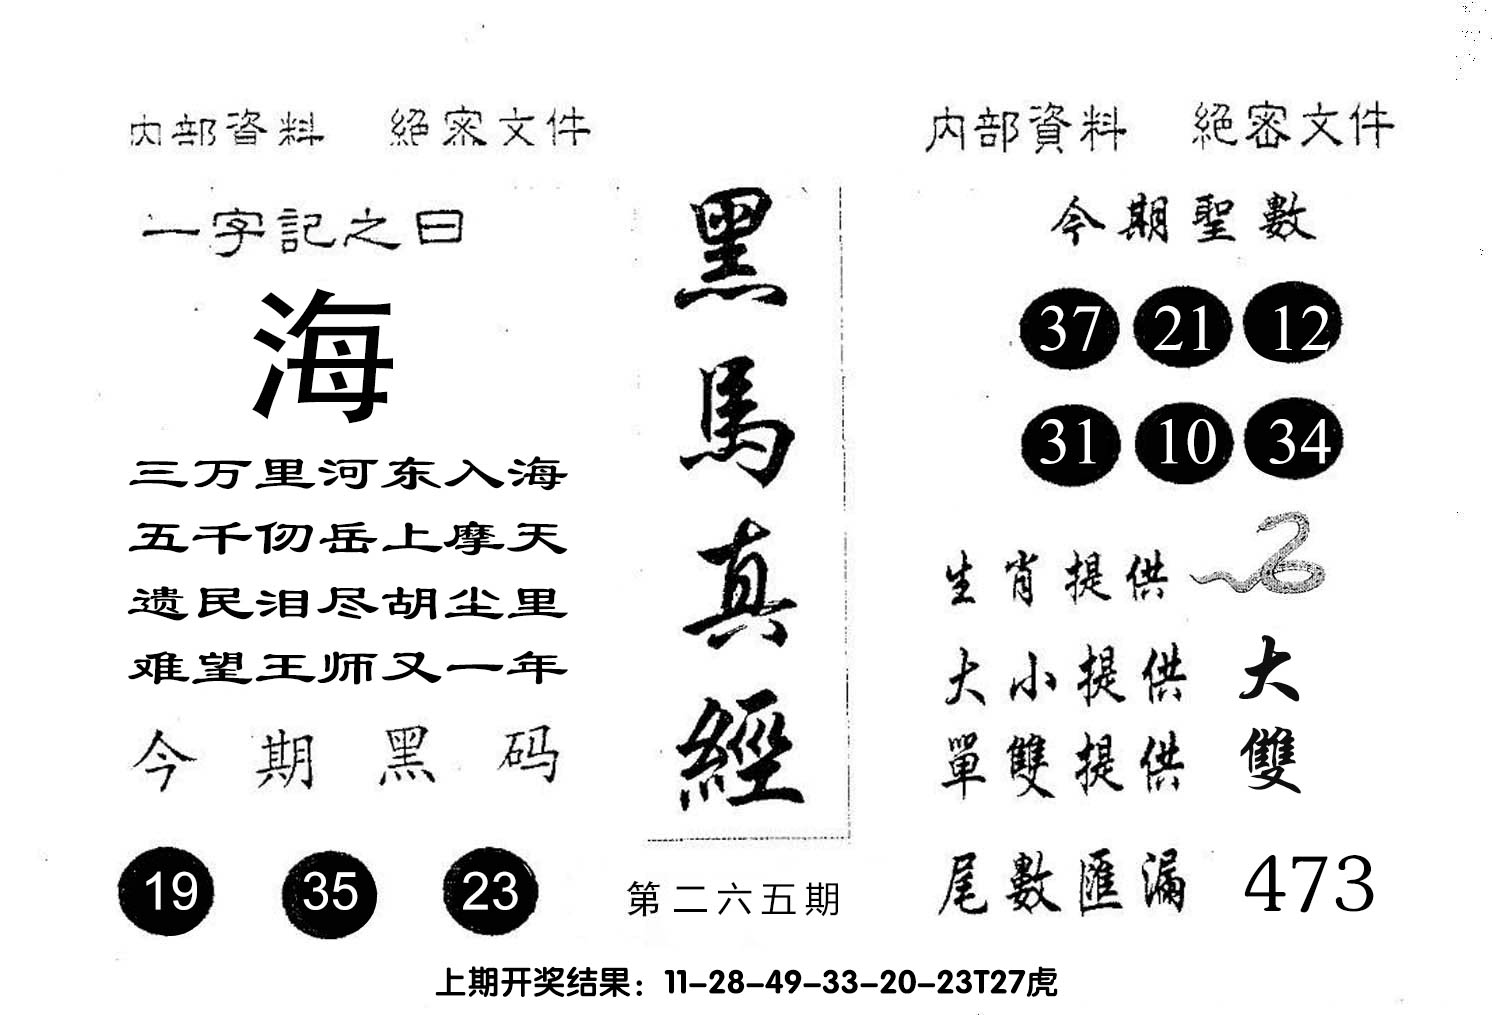 内部資料 絕密文件
一字記之曰
海
三万里河东入海
五千仞岳上摩天
遗民泪尽胡尘里
难望王师又一年
今期黑码
19 35 23
黑馬真經
第二六五期
内部資料 絕密文件
今期聖數
37 21 12
31 10 34
生肖提供
大小提供 大
單雙提供 雙
尾數匯漏 473
上期开奖结果：11-28-49-33-20-23T27虎